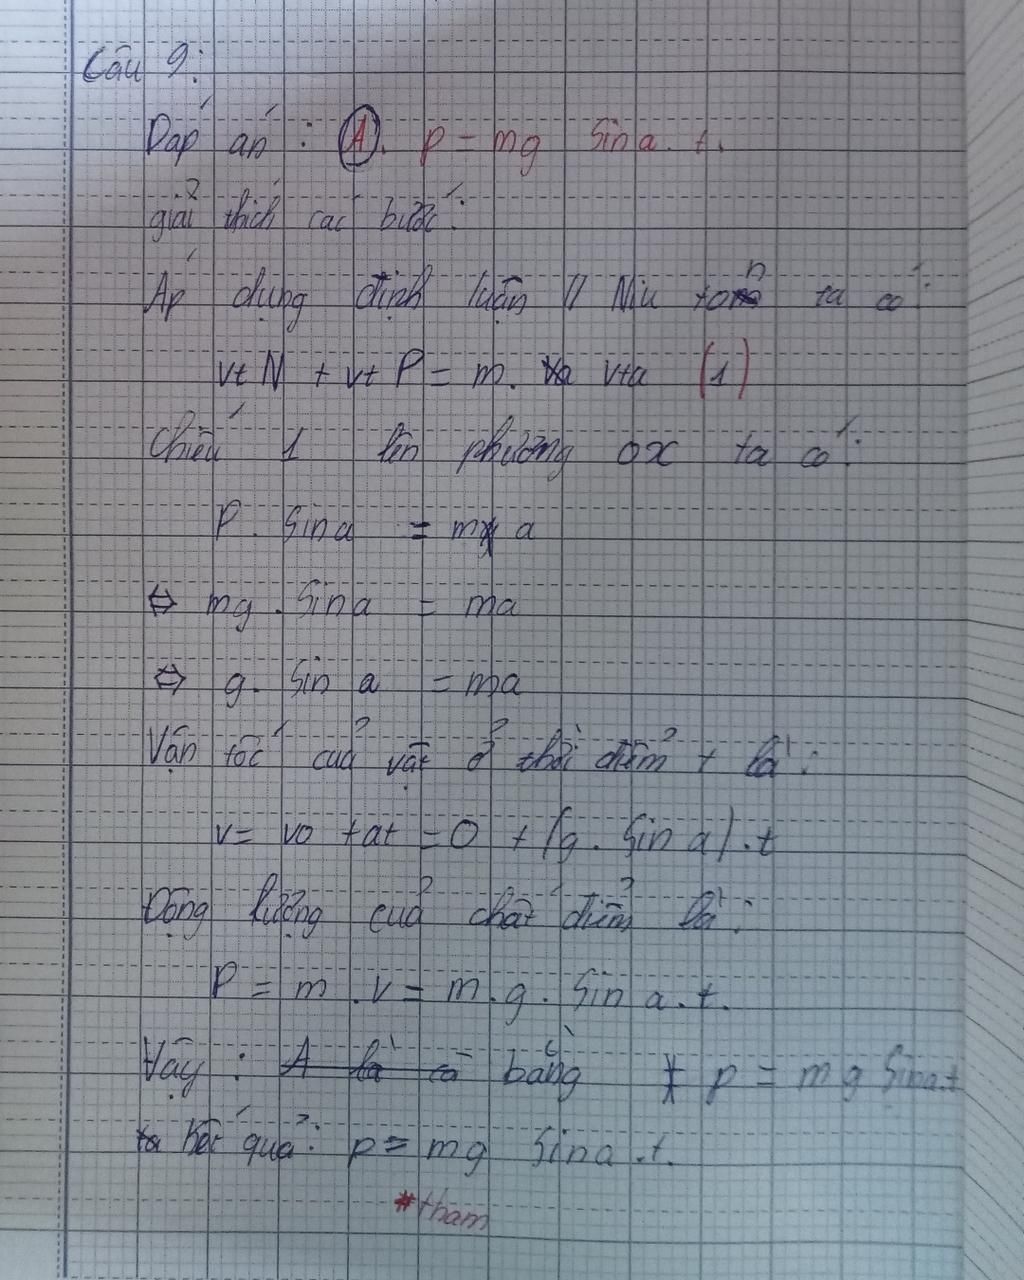 Câu 9:
Đáp án : A. p = mg Sina. t.
giải thích các bước:
Áp dụng định luận II Niu ton ta có:
vt N + vt P = m. vta (1)
Chiếu 1 lên phương ox ta có:
P. Sina = m a
⇔ mg. Sina = ma
⇔ g. Sin a = ma
Vận tốc của vật ở thời điểm t là:
v = vo + at = 0 + (g. Sin a). t
Động lượng của chất điểm là:
P = m. v = m. g. Sin a. t.
Vậy : A là cò bằng p = mg Sina.t
ta kết quả: p = mg Sina. t.
#tham